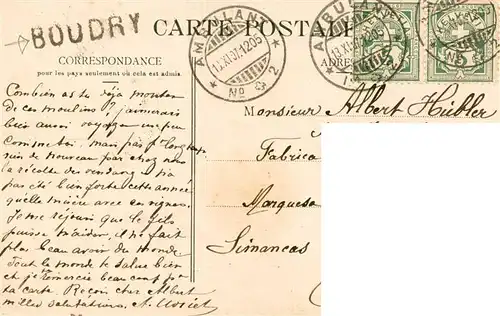 BOUDRY
CARTE POSTALE
AMBULANT
12.XI.07.1205
No 2
CORRESPONDANCE
pour les pays seulement où cela est admis.
ADRESSE
Combien as tu déjà monter
de ces moulins? j'aimerais
bien aussi voyager un peu
comme toi. mais pas
de nouveau par chez nous
la récolte des vendang. n'a
pas été bien forte cette année
quelle misère avec ces vignes.
Je me réjouis que le fils
puisse m'aider. il ne fait
plus beau avoir du monde.
Tout le monde te salue bien
et je remercie beaucoup pour
ta carte. Reçois cher Albert
mille salutations. A.
Monsieur Albert Hubler
Fabrica
Marquesa
Simancas